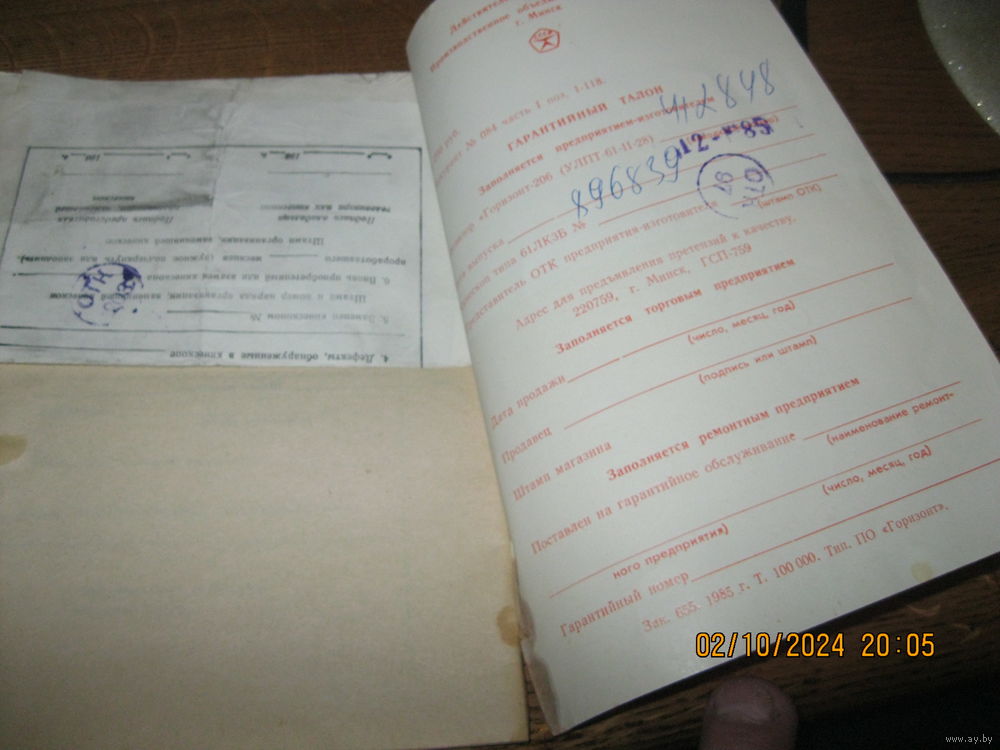 Производственное
г. Минск
СССР
руб.
№ 084 часть I поз. 1-118.
ГАРАНТИЙНЫЙ ТАЛОН
Заполняется предприятием-изготовителем
«Горизонт-206 (УЛПТ-61-II-28)
412848
выпуска
12 85
типа 61ЛК3Б № 896839
ОТК предприятия-изготовителя
(штамп ОТК)
ОТК
97
Адрес для предъявления претензий к качеству.
220759, г. Минск, ГСП-759
Заполняется торговым предприятием
Дата продажи
(число, месяц, год)
Продавец
(подпись или штамп)
Штамп магазина
Заполняется ремонтным предприятием
Поставлен на гарантийное обслуживание
(наименование ремонт-
ного предприятия)
(число, месяц, год)
Гарантийный номер
Зак. 655. 1985 г. Т. 100 000. Тип. ПО «Горизонт».
4. Дефекты, обнаруженные в кинескопе
5. Заменен кинескопом №
Штамп и номер наряда организации,
6. Вновь приобретенный или взамен кинескопа
проработавшего месяцев (нужное подчеркнуть или заполнить)
Штамп организации, заменившей кинескоп
Подпись владельца
Подпись представителя
ОТК
02/10/2024 20:05
www.ay.by